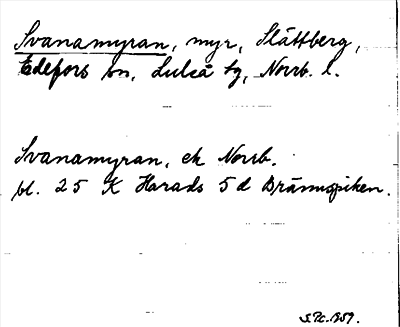 Svanamyran, myr, Slättberg,
Edefors sn, Luleå tg, Norrb. l.
Svanamyran, ek Norrb.
bl. 25 K Harads 5 d Brännspiken.
1959.